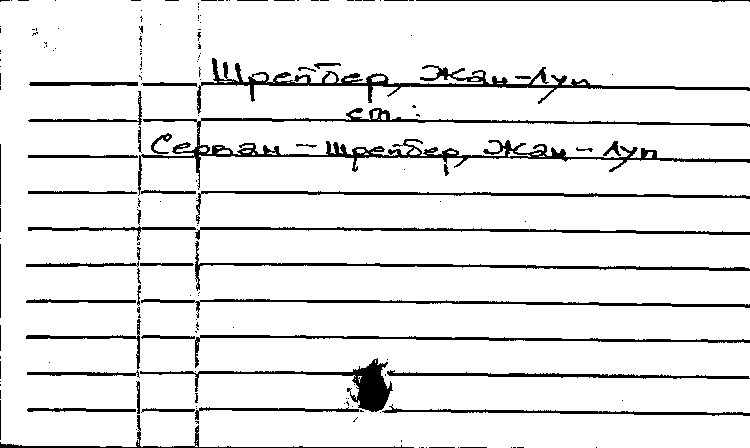 Шрейбер, Жан-Луи
вж.:
Серван - Шрейбер, Жан - Луи